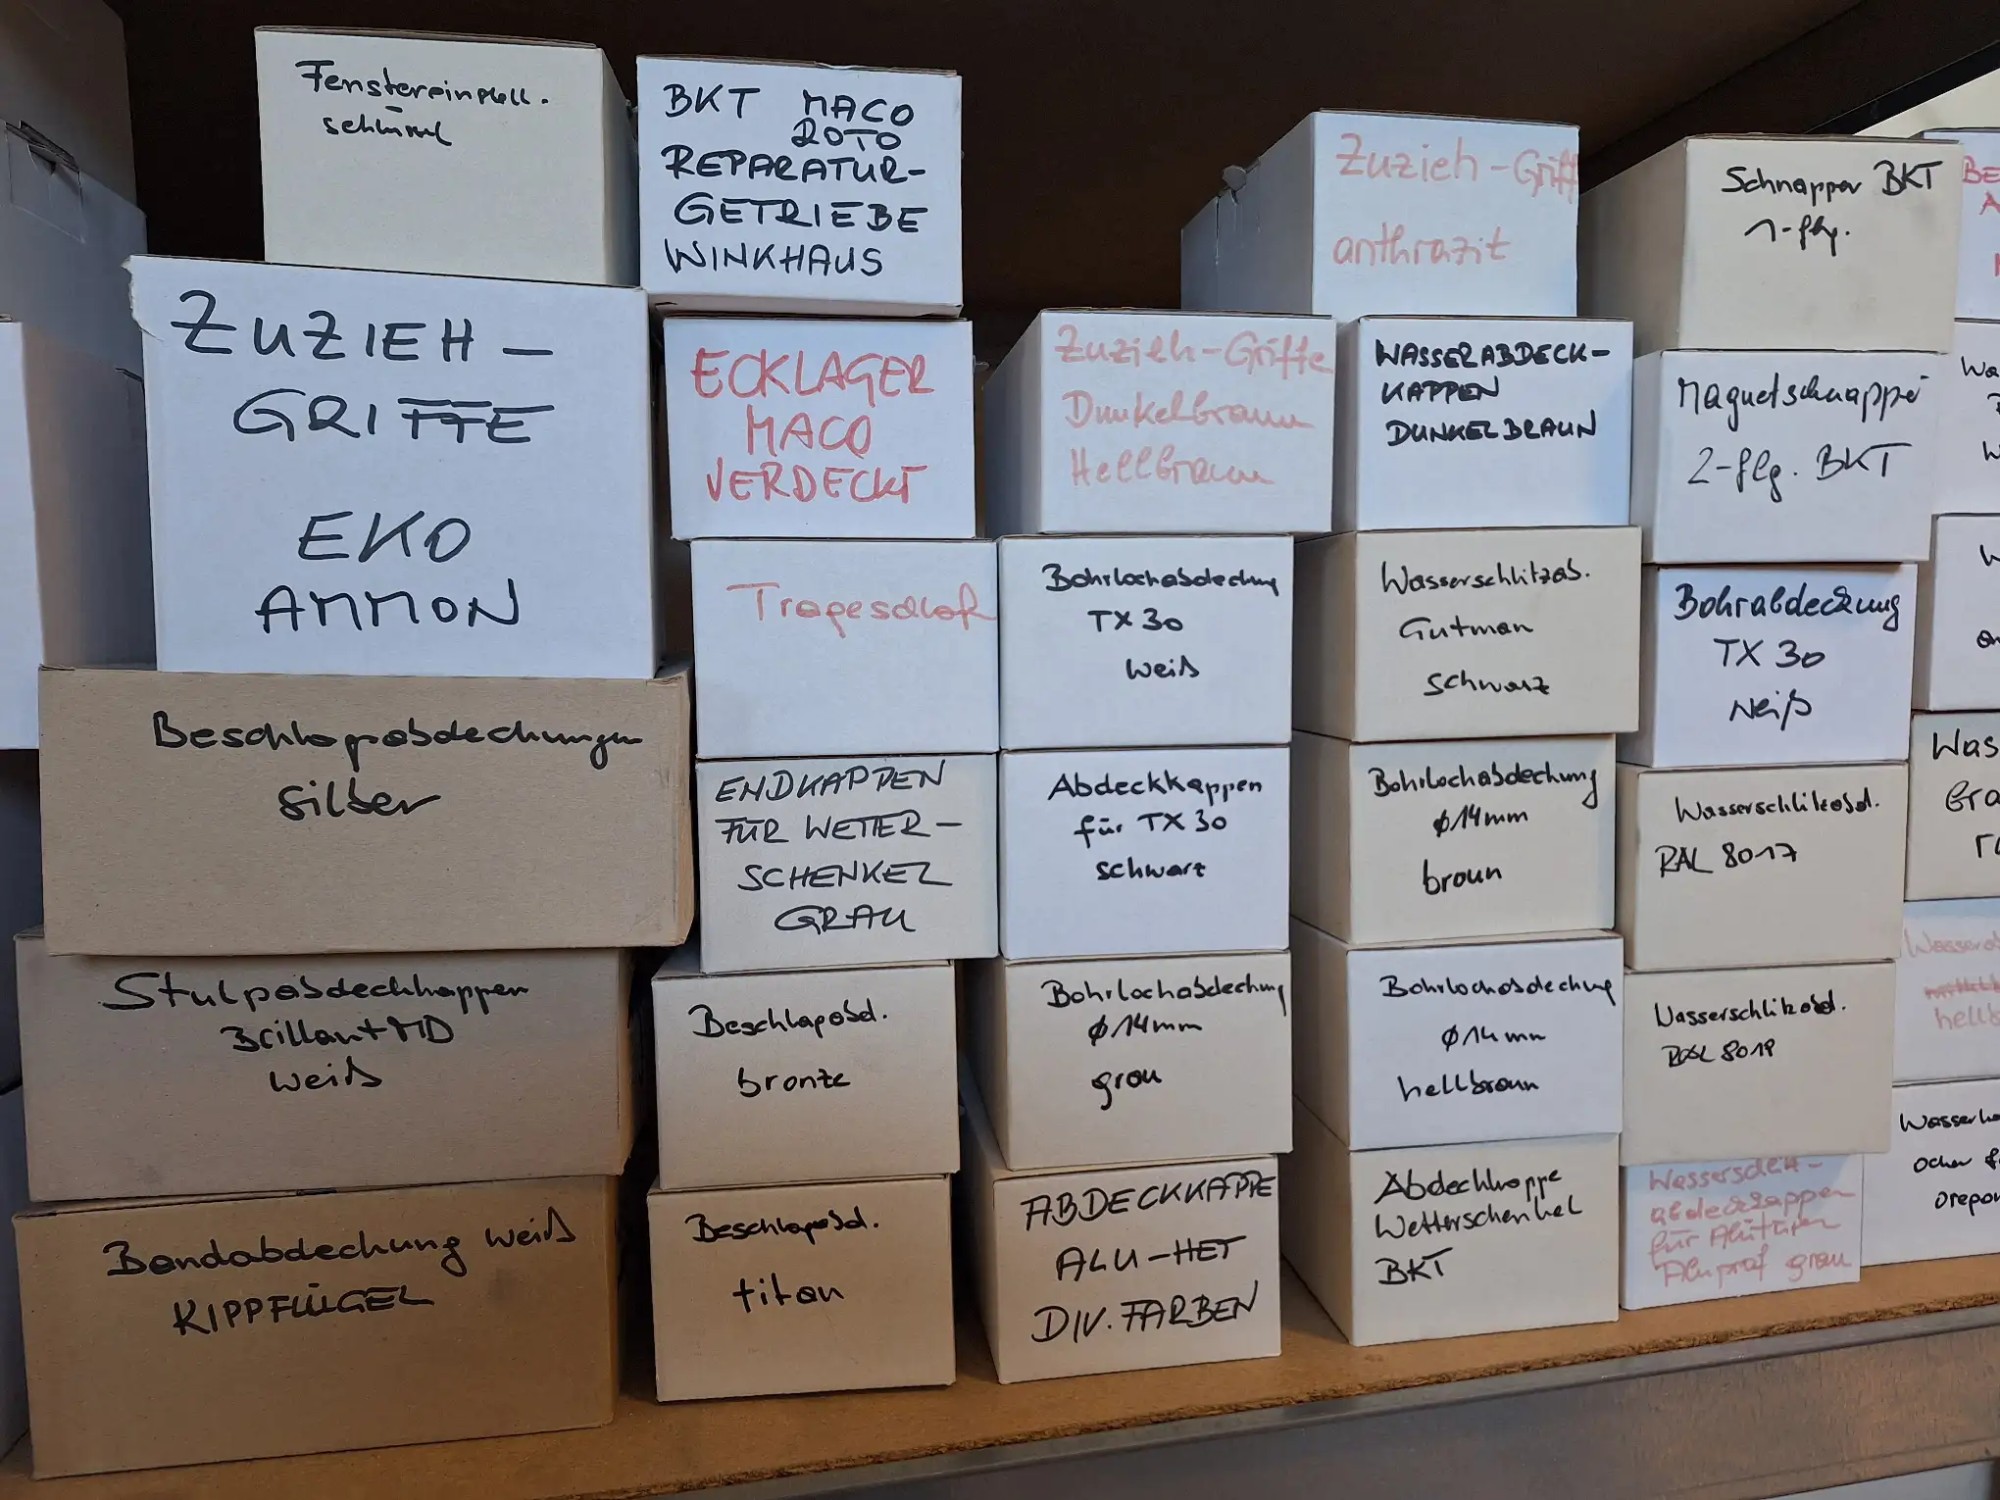 Fenstereinstell.
schlüssel
BKT MACO
ROTO
REPARATUR-
GETRIEBE
WINKHAUS
ZUZIEH-
GRIFFE
EKO
AMMON
ECKLAGER
MACO
VERDECKT
Beschlagsabdeckungen
silber
Stulpabdeckkappen
Brillant MD
weiß
Bandabdeckung weiß
KIPPFLÜGEL
Trageschlaf
ENDKAPPEN
FÜR WETTER-
SCHENKEL
GRAU
Beschlagabd.
bronze
Beschlagabd.
titan
Zuzieh-Griffe
Dunkelbraun
Hellbraun
Bohrlochabdeckung
TX 30
weiß
Abdeckkappen
für TX 30
schwarz
Bohrlochabdeckung
ø 14mm
grau
ABDECKKAPPE
ALU-HET
DIV. FARBEN
Zuzieh-Griff
anthrazit
WASSERABDECK-
KAPPEN
DUNKELBRAUN
Wasserschlitzab.
Gutman
schwarz
Bohrlochabdeckung
ø 14mm
braun
Bohrlochabdeckung
ø 14mm
hellbraun
Abdeckkappe
Wetterschenkel
BKT
Schnapper BKT
1-flg.
Magnetschnapper
2-flg. BKT
Bohrabdeckung
TX 30
weiß
Wasserschlitzabd.
RAL 8017
Wasserschlitzabd.
RAL 8019
abdeckkappen
für Alutüren
Aluprof grau
BE
A
Wa
W
Was
Gra
Wasserab
hellb
ocker